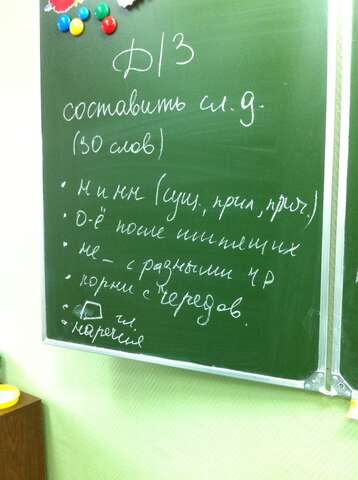 Д/З
составить сл. д.
(30 слов)
• н и нн (сущ., прил., прич.)
• о-ё после шипящих
• не – с разными ч р
• корни с чередов.
• гл.
• наречия